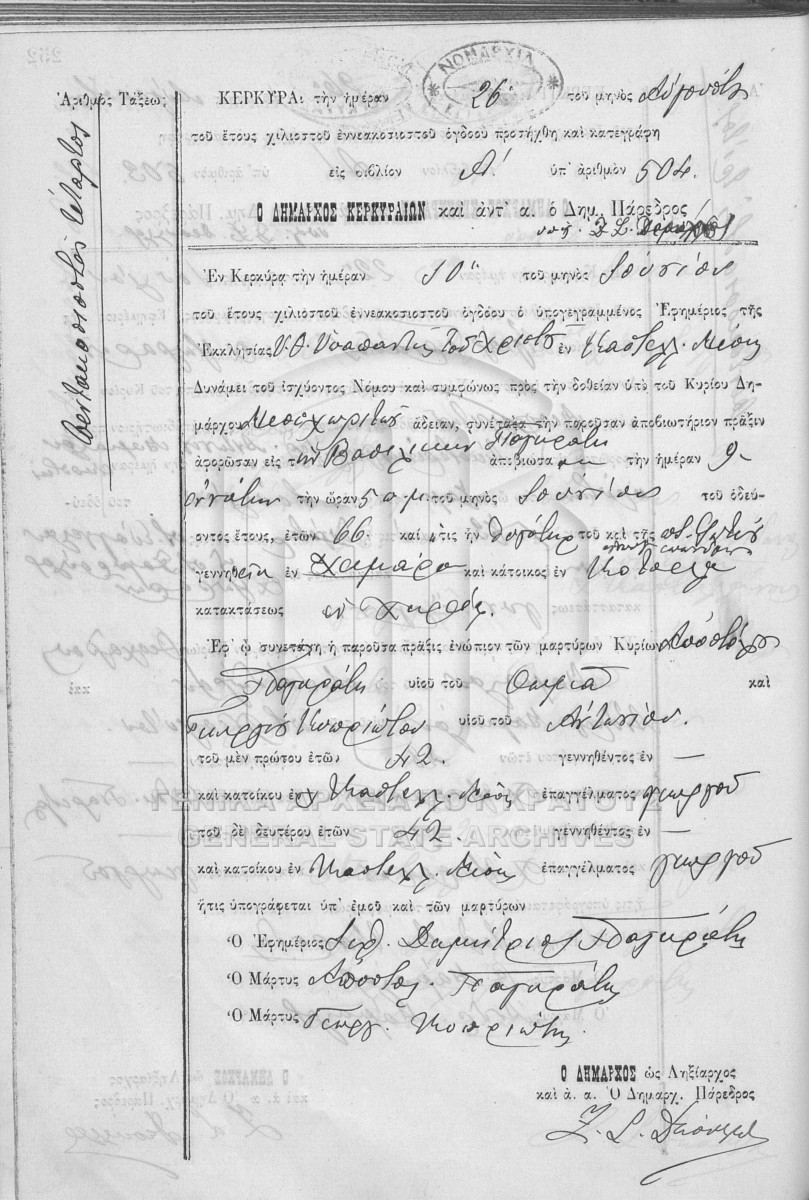 ΝΟΜΑΡΧΙΑ
Ἀριθμὸς Τάξεως
πεντακοσιοστὸς τέταρτος
ΚΕΡΚΥΡΑι τὴν ἡμέραν 26 τοῦ μηνὸς Αὐγούστου
τοῦ ἔτους χιλιοστοῦ ἐννεακοσιοστοῦ ὀγδόου προσήχθη καὶ κατεγράφη
εἰς βιβλίον Α' ὑπ' ἀριθμὸν 504.
Ο ΔΗΜΑΡΧΟΣ ΚΕΡΚΥΡΑΙΩΝ καὶ ἀντ' α. ὁ Δημ. Πάρεδρος
Ἐν Κερκύρᾳ τὴν ἡμέραν 10 τοῦ μηνὸς Ἰουνίου
τοῦ ἔτους χιλιοστοῦ ἐννεακοσιοστοῦ ὀγδόου ὁ ὑπογεγραμμένος Ἐφημέριος τῆς
Ἐκκλησίας Υ.Θ. Ὑπαπαντῆς τοῦ Χριστοῦ ἐν Καστελλ. Μέσης
Δυνάμει τοῦ ἰσχύοντος Νόμου καὶ συμφώνως πρὸς τὴν δοθεῖσαν ὑπὸ τοῦ Κυρίου Δη-
μάρχου Μεσοχωριτῶν ἄδειαν, συνέταξα τὴν παροῦσαν ἀποβιωτήριον πρᾶξιν
ἀφορῶσαν εἰς τὴν Βασιλικὴν Παγκράτη ἀποβιώσασαν τὴν ἡμέραν 9
ἐννάτην τὴν ὥραν 5 π.μ. τοῦ μηνὸς Ἰουνίου τοῦ ὁδεύ-
οντος ἔτους, ἐτῶν 66 καὶ ἥτις ἦν θυγάτηρ τοῦ καὶ τῆς
γεννηθεῖσα ἐν καὶ κάτοικος ἐν
κατακτάσεως ἐν χηρείᾳ.
Ἐφ' ᾧ συνετάχη ἡ παροῦσα πρᾶξις ἐνώπιον τῶν μαρτύρων Κυρίων Ἀποστόλου
Παγκράτη υἱοῦ τοῦ Θωμᾶ καὶ
Γεωργίου Κυπριώτου υἱοῦ τοῦ Ἀντωνίου.
τοῦ μὲν πρώτου ἐτῶν 42. γεννηθέντος ἐν —
καὶ κατοίκου ἐν Καστελλ. Μέσης ἐπαγγέλματος γεωργοῦ
ΓΕΝΙΚΑ ΑΡΧΕΙΑ ΤΟΥ ΚΡΑΤΟΥΣ
τοῦ δὲ δευτέρου ἐτῶν 42. γεννηθέντος ἐν —
GENERAL STATE ARCHIVES
καὶ κατοίκου ἐν Καστελλ. Μέσης ἐπαγγέλματος γεωργοῦ
ἥτις ὑπογράφεται ὑπ' ἐμοῦ καὶ τῶν μαρτύρων
Ὁ Ἐφημέριος Δημήτριος Παγκράτης
Ὁ Μάρτυς Ἀποστολ. Παγκράτης
Ὁ Μάρτυς Γεώργ. Κυπριώτης.
Ο ΔΗΜΑΡΧΟΣ ὡς Ληξίαρχος
καὶ ἀ. α. Ὁ Δημαρχ. Πάρεδρος